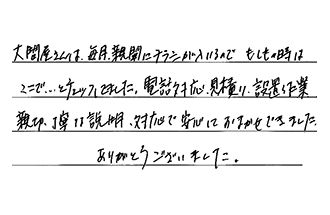 大問屋さんは、毎月、新聞にチラシが入いるので もしもの時は
ここで…とチェックしてました。電話対応、見積り、設置作業
親切、丁寧な説明、対応で安心しておまかせできました。
ありがとうございました。